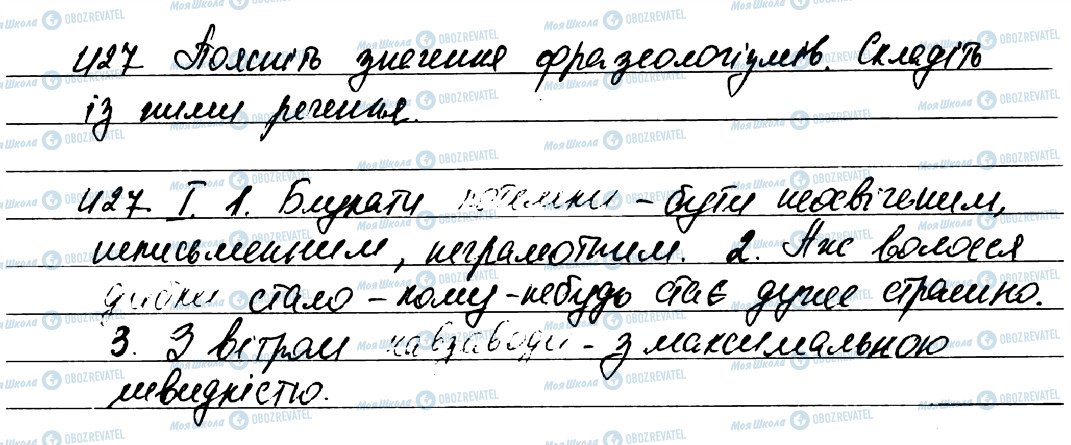 427 Поясніть значення фразеологізмів. Складіть
із ними речення.
427. I. 1. Блукати потемки – бути неосвіченим,
неписьменним, неграмотним. 2. Аж волосся
дибки стало – кому-небудь стає дуже страшно.
3. З вітром навзаводи – з максимальною
швидкістю.